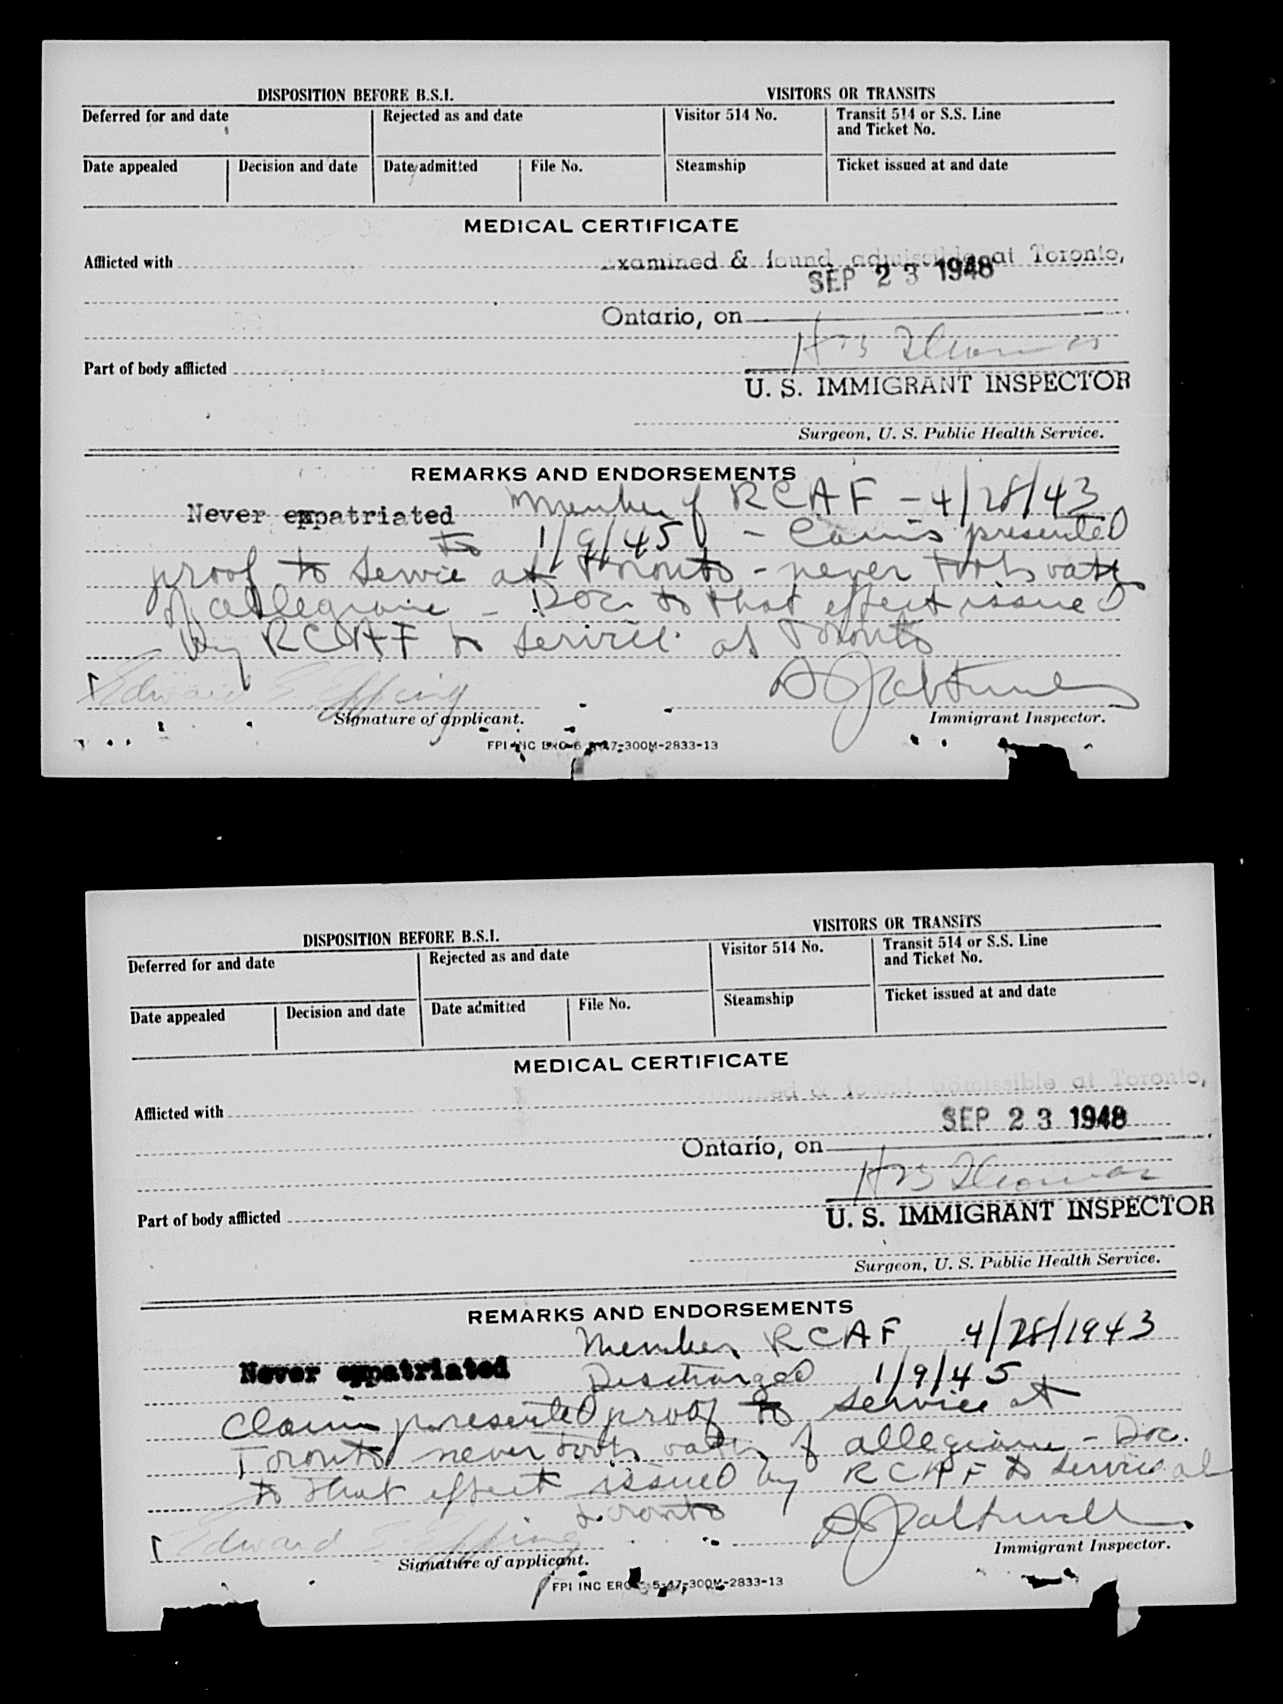 DISPOSITION BEFORE B.S.I. VISITORS OR TRANSITS
Deferred for and date Rejected as and date Visitor 514 No. Transit 514 or S.S. Line and Ticket No.
Date appealed Decision and date Date admitted File No. Steamship Ticket issued at and date
MEDICAL CERTIFICATE
Afflicted with Examined & found admissible at Toronto,
SEP 23 1948
Ontario, on
U. S. IMMIGRANT INSPECTOR
Part of body afflicted
Surgeon, U. S. Public Health Service.
REMARKS AND ENDORSEMENTS
Never expatriated Member of RCAF - 4/28/43
to 1/9/45 - presented
proof to service at Toronto - never took oath
of allegiance - Doc. to that effect issued
by RCAF to service at Toronto
Edward E. Epping
Signature of applicant. Immigrant Inspector.
FPI INC 47-300M-2833-13
DISPOSITION BEFORE B.S.I. VISITORS OR TRANSITS
Deferred for and date Rejected as and date Visitor 514 No. Transit 514 or S.S. Line and Ticket No.
Date appealed Decision and date Date admitted File No. Steamship Ticket issued at and date
MEDICAL CERTIFICATE
Afflicted with & found admissible at Toronto,
SEP 23 1948
Ontario, on
U. S. IMMIGRANT INSPECTOR
Part of body afflicted
Surgeon, U. S. Public Health Service.
REMARKS AND ENDORSEMENTS
Never expatriated Member RCAF 4/28/1943
Discharged 1/9/45
Claim presented proof to service at
Toronto never took oath of allegiance - Doc.
to that effect issued by RCAF to service at
Toronto
Edward E Epping
Signature of applicant. Immigrant Inspector.
FPI INC 5-47-300M-2833-13